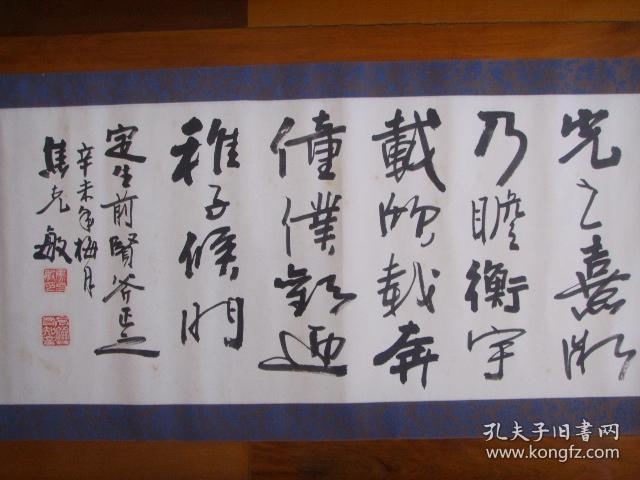 光之熹微
乃瞻衡宇
載欣載奔
僮僕歡迎
稚子候門
定生前賢斧正之
辛未年梅月
焦克敏
孔夫子旧書网
www.kongfz.com